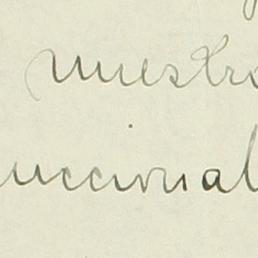 nuestro
uccional